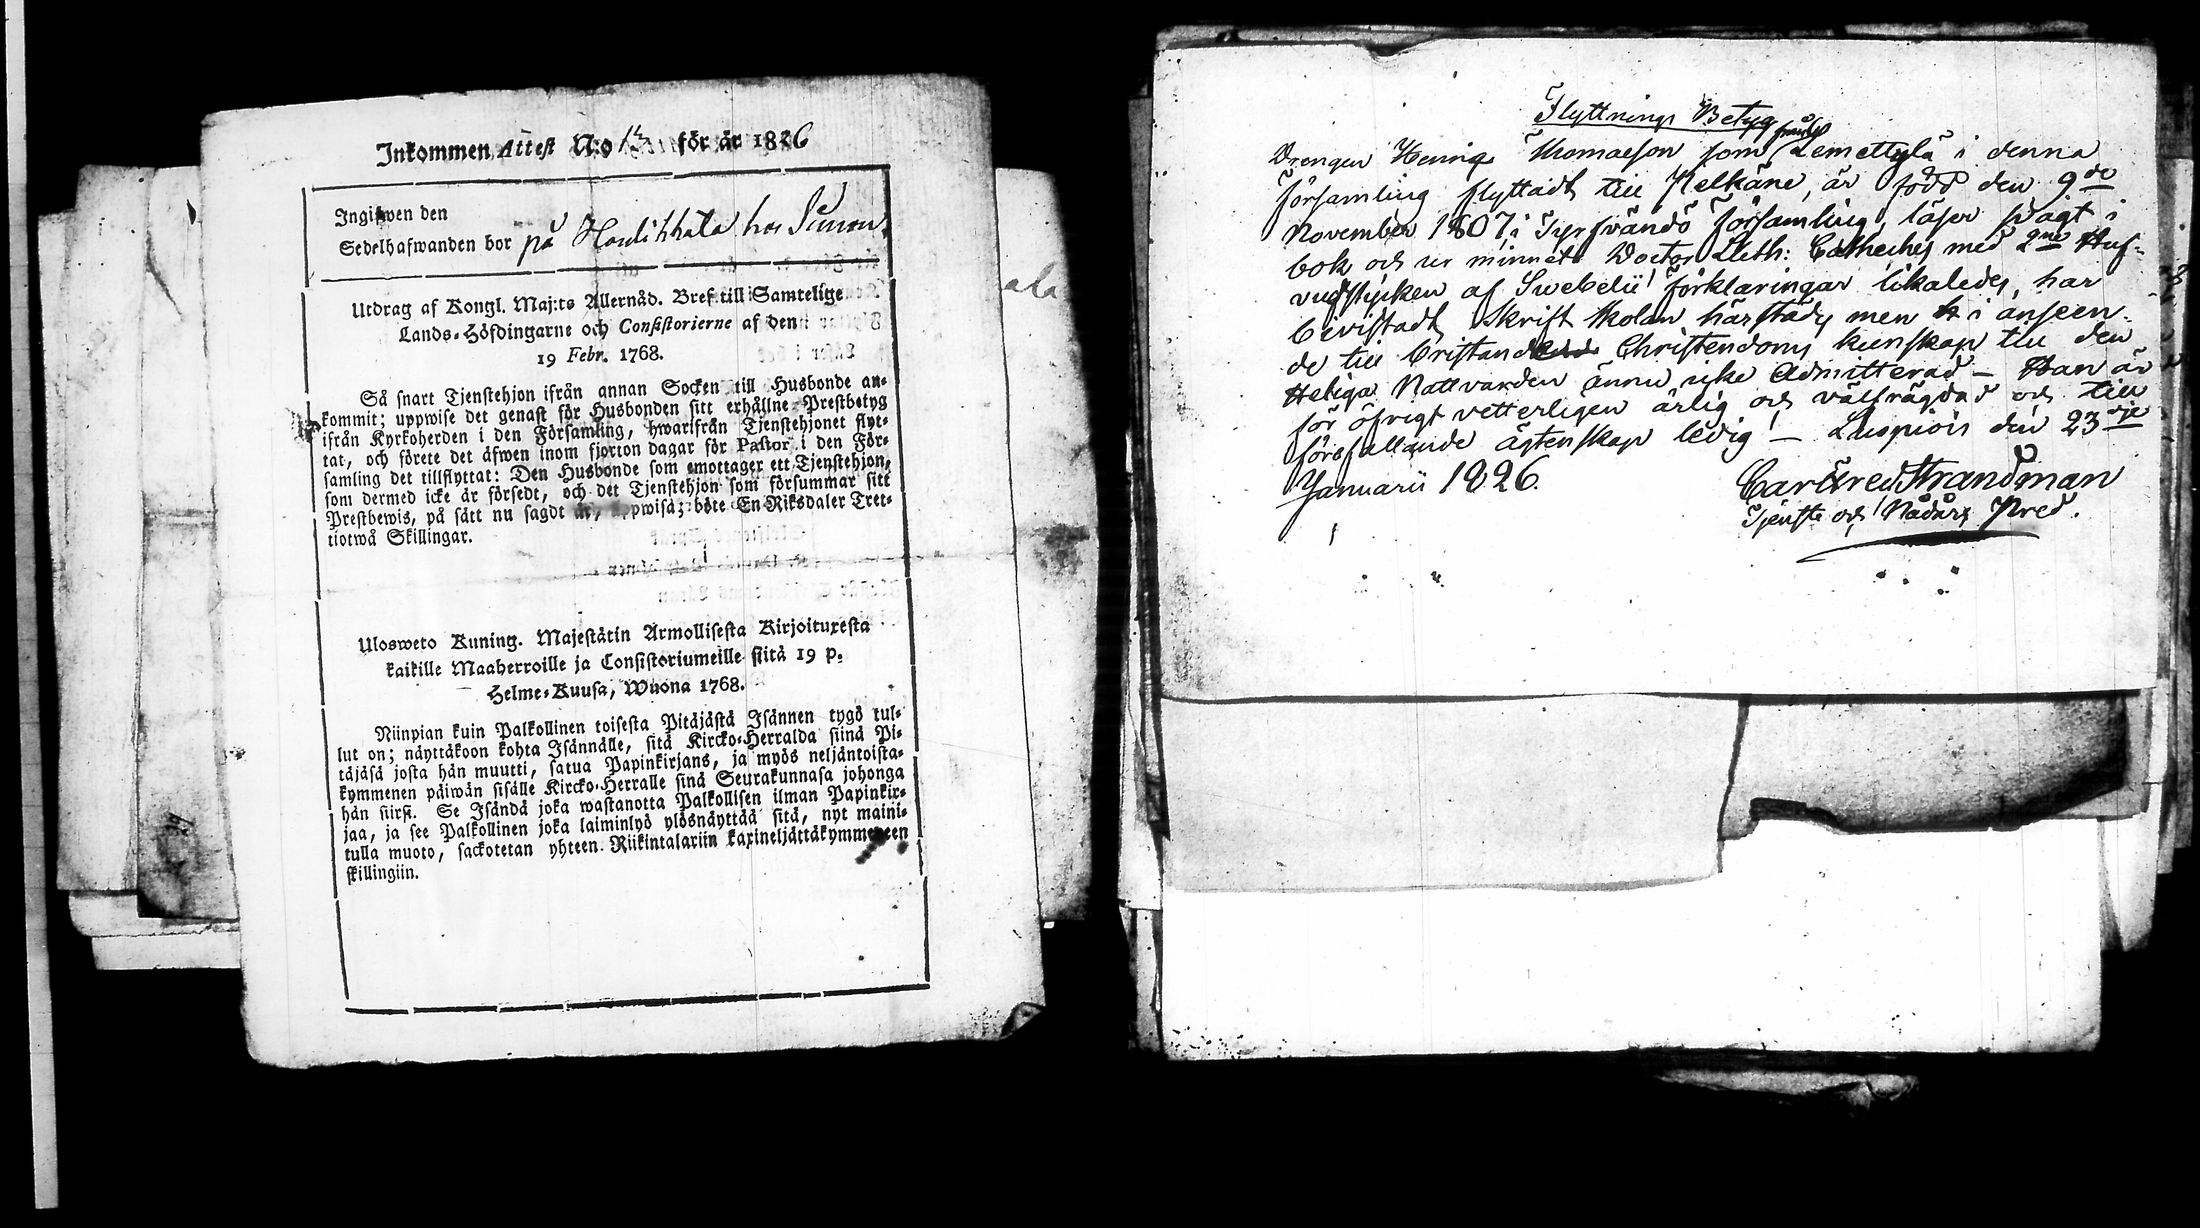 Inkommen Attest N:o 13 för år 1826
Ingifwen den
Sedelhafwanden bor på Haulikkala hos Simon.
Utdrag af Kongl. Maj:ts Allernåd. Bref till Samtelige
Lands-Höfdingarne och Consistorierne af den
19 Febr. 1768.
Så snart Tjenstehjon ifrån annan Socken till Husbonde an-
kommit; uppwise det genast för Husbonden sitt erhållne Prestbetyg
ifrån Kyrkoherden i den Församling, hwarifrån Tjenstehjonet flyt-
tat, och förete det äfwen inom fjorton dagar för Pastor i den För-
samling det tillflyttat: Den Husbonde som emottager ett Tjenstehjon,
som dermed icke är försedt, och det Tjenstehjon som försummar sitt
Prestbewis, på sätt nu sagdt är, uppwisa; böte En Riksdaler Tret-
tiotwå Skillingar.
Ulosweto Kuning. Majestätin Armollisesta Kirjoituxesta
kaikille Maaherroille ja Consistoriumeille siitä 19 p.
Helme-Kuusa, Wuona 1768.
Niinpian kuin Palkollinen toisesta Pitäjästä Isännen tygö tul-
lut on; näyttäkoon kohta Isännälle, sitä Kircko-Herralda siinä Pi-
täjäsä josta hän muutti, satua Papinkirjans, ja myös neljäntoista-
kymmenen päiwän sisälle Kircko-Herralle sinä Seurakunnasa johonga
hän siirsi. Se Isändä joka wastanotta Palkollisen ilman Papinkir-
jaa, ja see Palkollinen joka laiminlyö ylösnäyttää sitä, nyt maini-
tulla muoto, sackotetan yhteen Riikintalariin kaxineljättäkymmeneen
skillingiin.
Flyttnings Betyg
Drengen Henric Thomæson som från Lemettylä i denna
församling flyttadt till Pelkäne, är född den 9de
November 1807 i Tyrfvändö församling, läser svagt i
bok och ur minnet Doctor Luth: Catheches med 2ne Huf-
vudstycken af Swebelii förklaringar likaledes, har
bevistadt Skrift skolan härstädes men i anseen-
de till bristande Christendoms kunskap till den
Heliga Nattvarden ännu icke Admitterad – Han är
för öfrigt vetterligen ärlig och välfrägdad och till
förefallande ägtenskap ledig! – Luopiois den 23dje
Januarii 1826.
Carl Fred Strandman
Tjenste och Nådårs Pred.